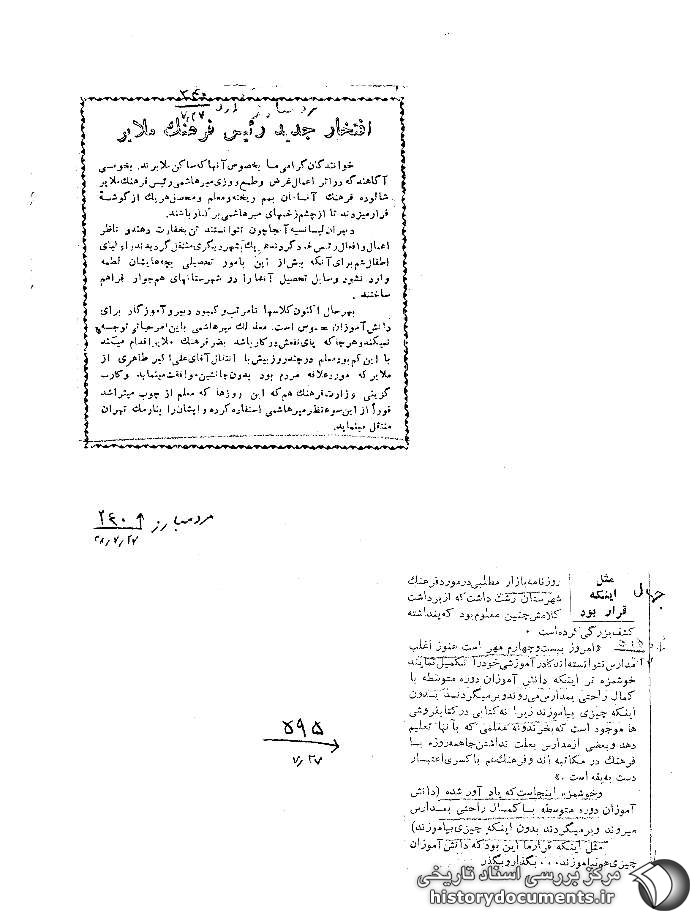 ۲۴۰
۷,۲۷
افتخار جدید رئیس فرهنگ ملایر
خوانندگان گرامی ما بخصوص آنها که ساکن ملایرند. بخوبی
آگاهند که در اثر اعمال غرض و طمع ورزی میرهاشمی رئیس فرهنگ ملایر
شالوده فرهنگ آنسامان بهم ریخته و معلم و محصل هریک از گوشهٔ
فرار میزدند تا از چشم زخمهای میرهاشمی برکنار باشند.
دبیران لیسانسیه آنجا چون نتوانستند تن بحقارت دهند و ناظر
اعمال و افعال رئیس خود گردند هریک بشهر دیگری منتقل گردیدند و اولیای
اطفال هم برای آنکه بیش از این بامور تحصیلی بچه‌هایشان لطمه
وارد نشود وسایل تحصیل آنها را در شهرستانهای همجوار فراهم
ساختند.
بهر حال اکنون کلاسها نامرتب و کمبود دبیر و آموزگار برای
دانش آموزان محسوس است. معذلک میرهاشمی باین امر حیاتی توجه
نمیکند و هر جا که پای نفعش در کار باشد بضرر فرهنگ ملایر اقدام میکند
با این کمبود معلم در چند روز پیش با انتقال آقای علی اکبر طاهری از
ملایر که مورد علاقه مردم بود بدون جانشین موافقت مینماید و کارت
گزینی وزارت فرهنگ هم که این روزها که معلم از چوب میتراشد
فوراً از این سوء نظر میرهاشمی استفاده کرده و ایشان را بنارمک تهران
منتقل مینماید.
مرد مبارز ۲۴۰
۳۸/۷/۲۷
جهان
مثل
اینکه
قرار بود
روزنامه بازار مطلبی در مورد فرهنگ
شهرستان رشت داشت که از برداشت
کلامش چنین معلوم بود که پنداشته
کشف بزرگی کرده است.
«امروز بیست و چهارم مهر است هنوز اغلب
مدارس نتوانسته‌اند کادر آموزشی خود را تکمیل نمایند
خوشمزه تر اینکه دانش آموزان دوره متوسطه با
کمال راحتی بمدارس میروند و برمیگردند بدون
اینکه چیزی بیاموزند زیرا نه کتابی در کتابفروشی
ها موجود است که بخرند و نه معلمی که بآنها تعلیم
دهد و بعضی از مدارس بعلت نداشتن جامه روزه با
فرهنگ در مکاتبه اند و فرهنگ هم با کسری اعتبار
دست به یقه است.»
و خوشمزه اینجاست که یادآور شده (دانش
آموزان دوره متوسطه با کمال راحتی بمدارس
میروند و برمیگردند بدون اینکه چیزی بیاموزند)
مثل اینکه قرار ما این بود که دانش آموزان
چیزی هم بیاموزند... بگذار و بگذر
۵۹۵
۷,۲۷
مرکز بررسی اسناد تاریخی
historydocuments.ir